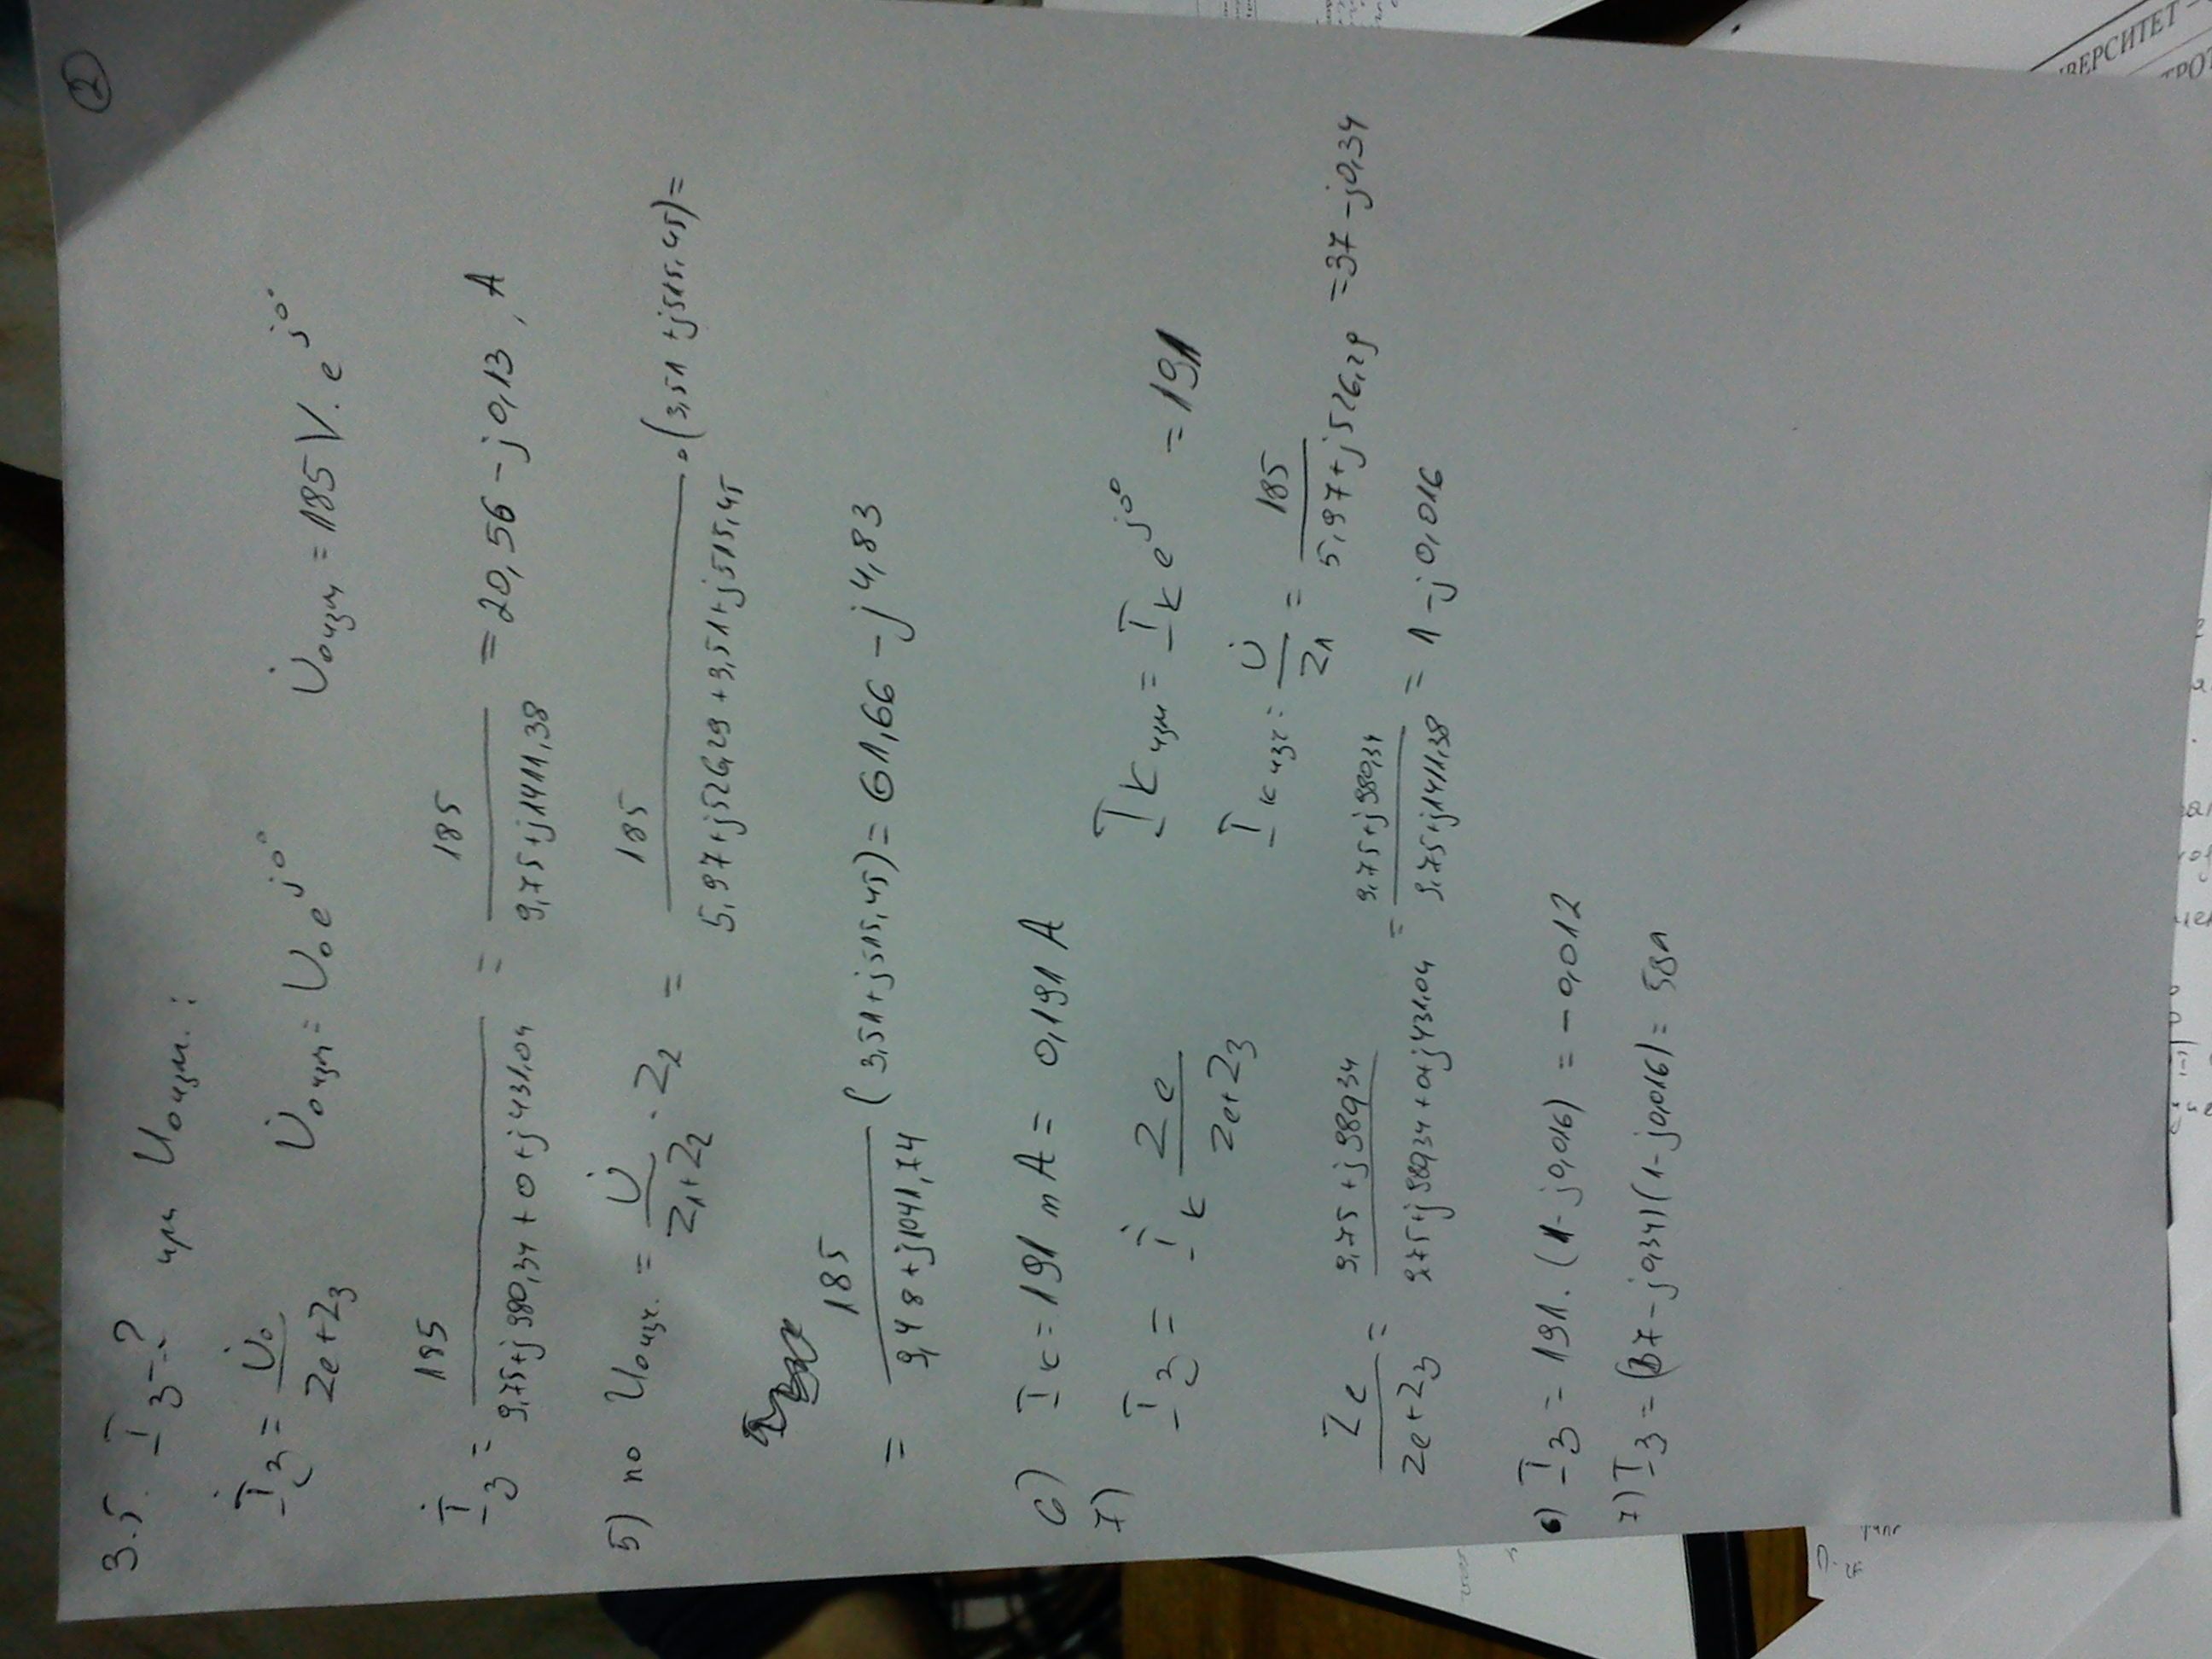 ②
3.5. I3-? при Uоизм.:
İ3 = U̇0 / (Ze+Z3)   U̇оизм = U0 e^j0°   U̇оизм = 185V. e^j0°
İ3 = 185 / (9,75+j980,34+0+j431,04) = 185 / (9,75+j1411,38) = 20,56 - j0,13, A
5) по Uоизч. = U̇ / (Z1+Z2) . Z2 = 185 / (5,97+j526,29+3,51+j515,45) . (3,51+j515,45) =
= 185 / (9,48+j1041,74) (3,51+j515,45) = 61,66 - j4,83
6) Iк = 191 mA = 0,191 A
7) I3 = İк Ze / (Ze+Z3)   Iк изм = Iк e^j0° = 191
Iк изч = U̇ / Z1 = 185 / (5,97+j526,29) = 37 - j0,34
Ze / (Ze+Z3) = (9,75+j980,34) / (9,75+j980,34+0+j431,04) = (9,75+j980,34) / (9,75+j1411,38) = 1 - j0,016
6) I3 = 191. (1-j0,016) = -0,012
7) I3 = (37 - j0,34)(1-j0,016) =
ИВЕРСИТЕТ -